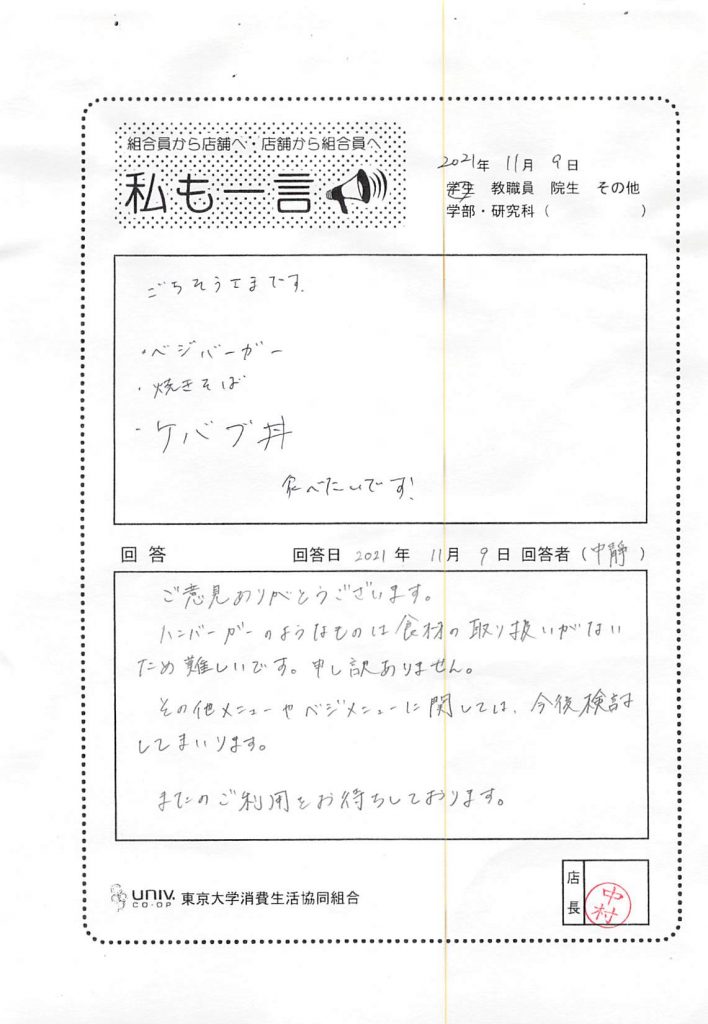 組合員から店舗へ・店舗から組合員へ
私も一言
2021年 11月 9日
学生 教職員 院生 その他
学部・研究科( )
ごちそうさまです.
・ベジバーガー
・焼きそば
・ケバブ丼
食べたいです!
回答 回答日 2021年 11月 9日 回答者(中静)
ご意見ありがとうございます。
ハンバーガーのようなものは食材の取り扱いがない
ため難しいです。申し訳ありません。
その他メニューやベジメニューに関しては、今後検討
してまいります。
またのご利用をお待ちしております。
UNIV. CO-OP 東京大学消費生活協同組合
店長
中村